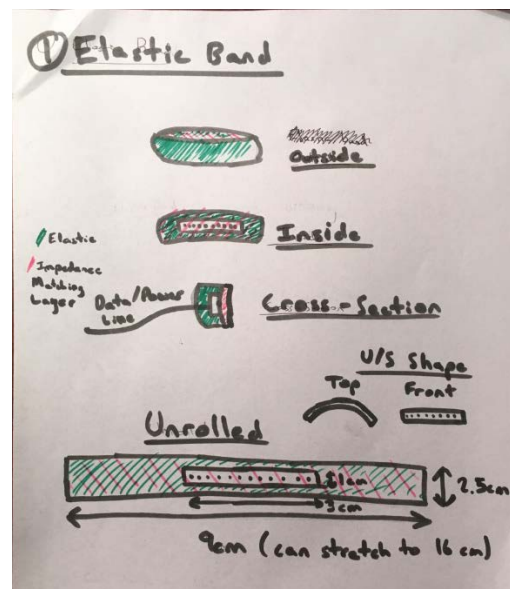 ① Elastic Band
Outside
Inside
Elastic
Impedance
Matching
Layer
Data/Power
Line
Cross-Section
U/S Shape
Top Front
Unrolled
1cm
3cm
2.5cm
9cm (can stretch to 16 cm)